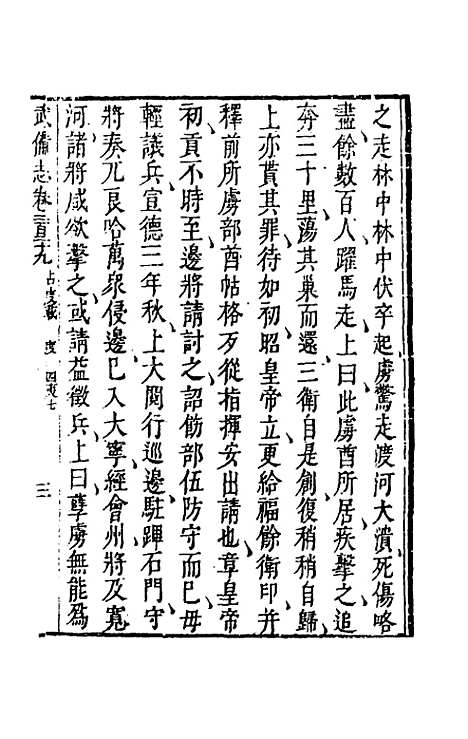 之走林中林中伏卒起虜驚走渡河大潰死傷略
盡餘數百人躍馬走上曰此虜酋所居疾擊之追
奔三十里蕩其巢而還三衛自是創復稍稍自歸
上亦貰其罪待如初昭皇帝立更給福餘衛印并
釋前所虜部酋帖格歹從指揮安出請也章皇帝
初貢不時至邊將請討之詔飭部伍防守而已毋
輕議兵宣德三年秋上大閱行巡邊駐蹕石門守
將奏兀良哈萬衆侵邊已入大寧經會州將及寬
河諸將咸欲擊之或請益徵兵上曰孽虜無能爲
武備志卷二百二十九 占度載 度 四夷七 三